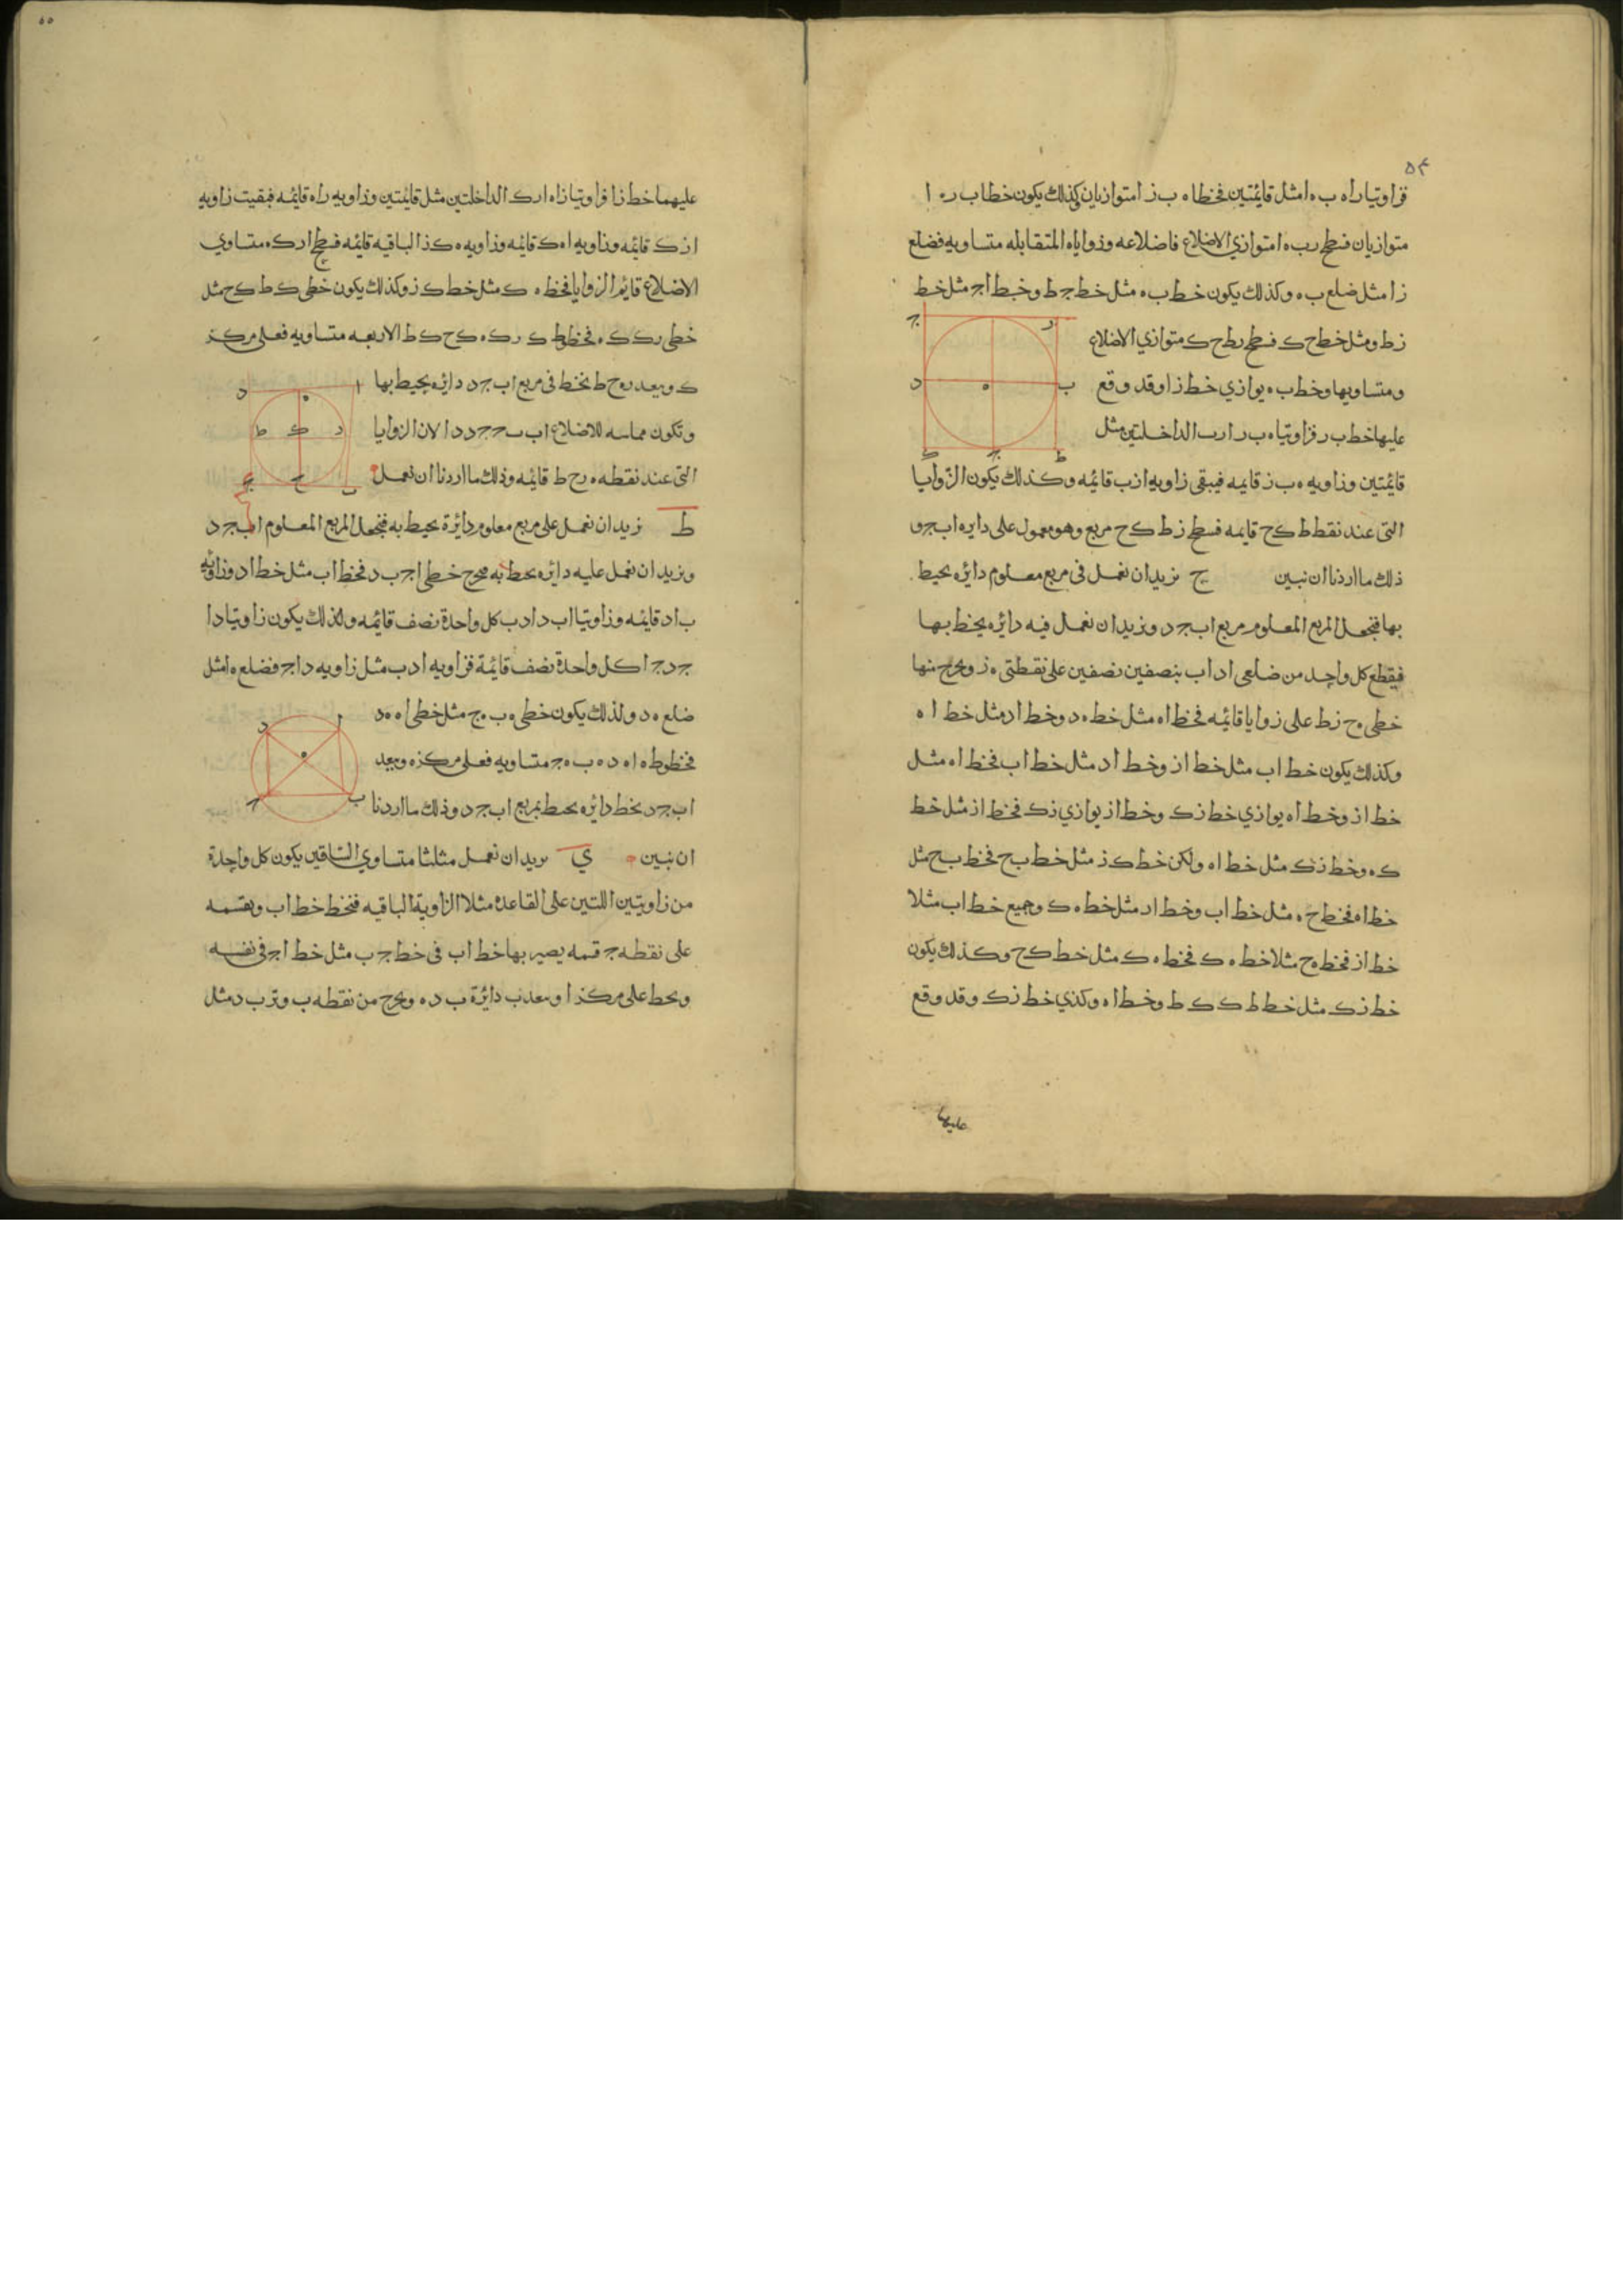 ٥٤
فزاويتا راه ب ه ا مثل قائمتين فخطا ه ب ز ا متوازيان وكذلك يكون خطا ب ر ه ا
متوازيان فسطح رب ه ا متوازي الاضلاع فاضلاعه وزواياه المتقابله متساويه فضلع
زا مثل ضلع ب ه وكذلك يكون خط ب ه مثل خط جـ ط وخط اجـ مثل خط
زط ومثل خط ح ك فسطح رط ح ك متوازي الاضلاع
ومتساويها وخط ب ه يوازي خط زا وقد وقع
عليها خط ب ر فزاويتا ه ب ر ارب الداخلتين مثل
قائمتين وزاويه ه ب ز قايمه فيبقى زاويه ازب قائمه وكذلك يكون الزوايا
التى عند نقط ط ك ح قايمه فسطح زط ك ح مربع وهو معمول على دايره اب جـ د
ذلك ما اردنا ان نبين ح نزيد ان نعمل فى مربع معلوم دائره يحيط
بها فنجعل المربع المعلوم مربع اب جـ د ونزيد ان نعمل فيه دائره يحيط بها
فيقطع كل واحد من ضلعى اد اب بنصفين نصفين على نقطتى ه ز ونخرج منها
خطى ه ح زط على زوايا قائمه فخط اه مثل خط ه د وخط اد مثل خط ا ه
وكذلك يكون خط اب مثل خط از وخط اد مثل خط اب فخط اه مثل
خط از وخط اه يوازي خط زك وخط از يوازي زك فخط از مثل خط
ك ه وخط زك مثل خط اه ولكن خط ك ز مثل خط ب ح فخط ب ح مثل
خط اه فخط ح ه مثل خط اب وخط اد مثل خط ه ك وجميع خط اب مثلا
خط از فخط ه ح مثلا خط ه ك فخط ه ك مثل خط ك ح وكذلك يكون
خط زك مثل خط ط ك ك ط وخط ا ه وكذي خط زك وقد وقع
عليها
٥٥
عليهما خط زا فزاويتا زاه ارك الداخلتين مثل قائمتين وزاويه راه قائمه فبقيت زاويه
ازك قائمه وزاويه اه ك قائمه وزاويه ه ك ذ الباقيه قائمه فسطح ارك ه متساوي
الاضلاع قايم الزوايا فخط ه ك مثل خط ك ز وكذلك يكون خطى ك ط ك ح مثل
خطى رك ك ه فخطوط ك رك ه ك ح ك ط الاربعه متساويه فعلى مركز
ك وببعد ره ح ط نخط فى مربع اب جـ د دائره يحيط بها
وتكون مماسه للاضلاع اب ب جـ جـ د د ا لان الزوايا
التى عند نقطه ه رح ط قائمه وذلك ما اردنا ان نعمل
ط نزيد ان نعمل على مربع معلوم دائرة يحيط به فنجعل المربع المعلوم اب جـ د
ونزيد ان نعمل عليه دائره يحيط به فنخرج خطى اجـ ب د فخط اب مثل خط اد وزاويه
ب اد قايمه وزاويتا اب د ادب كل واحدة نصف قائمه ولذلك يكون زاويتا دا
جـ د جـ ا كل واحدة نصف قائمة فزاويه ادب مثل زاويه داجـ فضلع ه ا مثل
ضلع ه د ولذلك يكون خطى ه ب ه ج مثل خطى اه ه د
فخطوط ه ا ه د ه ب ه جـ متساويه فعلى مركز ه وببعد
اب جـ د نخط دائره يحيط بمربع اب جـ د وذلك ما اردنا
ان نبين ي نريد ان نعمل مثلثا متساوي الساقين يكون كل واحدة
من زاويتين اللتين على القاعده مثلا الزاوية الباقيه فنخط خط اب ونقسمه
على نقطه جـ قسمه يصير بها خط اب فى خط جـ ب مثل خط اجـ فى نفسه
ونخط على مركز ا وببعد ب دائرة ب د ه ونخرج من نقطه ب وتر ب د مثل